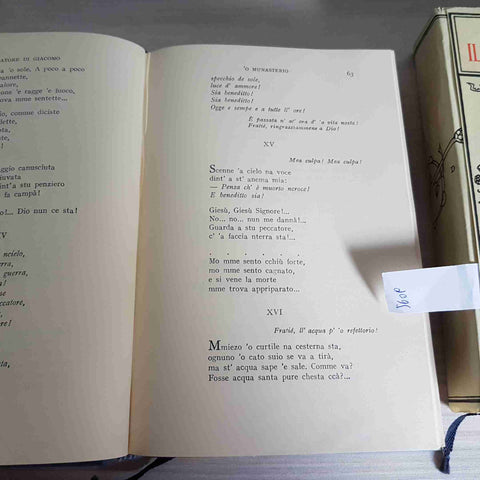 ATORE DI GIACOMO
a 'o sole, A poco a poco
annette,
alore,
ne 'e ragge 'e fuoco,
ova mme sentette...
o, comme diciste
dette,
ta,
sta...
aggio canusciuta
iuvata
dint'a stu penziero
fa campà!
o!... Dio nun ce sta!
V
ncielo,
rra,
guerra,
se
ccatore,
re!
sta,
'O MUNASTERIO
63
specchio de sole,
luce d' ammore!
Sia beneditto!
Sia benditto!
Oggie e sempe e a tutte ll' ore!
È passata n' at' ora d' 'a vita nosta!
Fratié, ringrazziammene a Dio!
XV
Mea culpa! Mea culpa!
Scenne 'a cielo na voce
dint' a st' anema mia:
— Penza ch' è muorto ncroce!
E beneditto sia!
Giesù, Giesù Signore!...
No... no... nun me dannà!...
Guarda a stu peccatore,
c' 'a faccia nterra sta!...
. . . . . .
Mo mme sento cchiù forte,
mo mme sento cagnato,
e si vene la morte
mme trova appriparato...
XVI
Fratié, ll' acqua p' 'o refettorio!
Mmiezo 'o curtile na cesterna sta,
ognuno 'o cato suio se va a tirà,
ma st' acqua sape 'e sale. Comme va?
Fosse acqua santa pure chesta ccà?...
IL